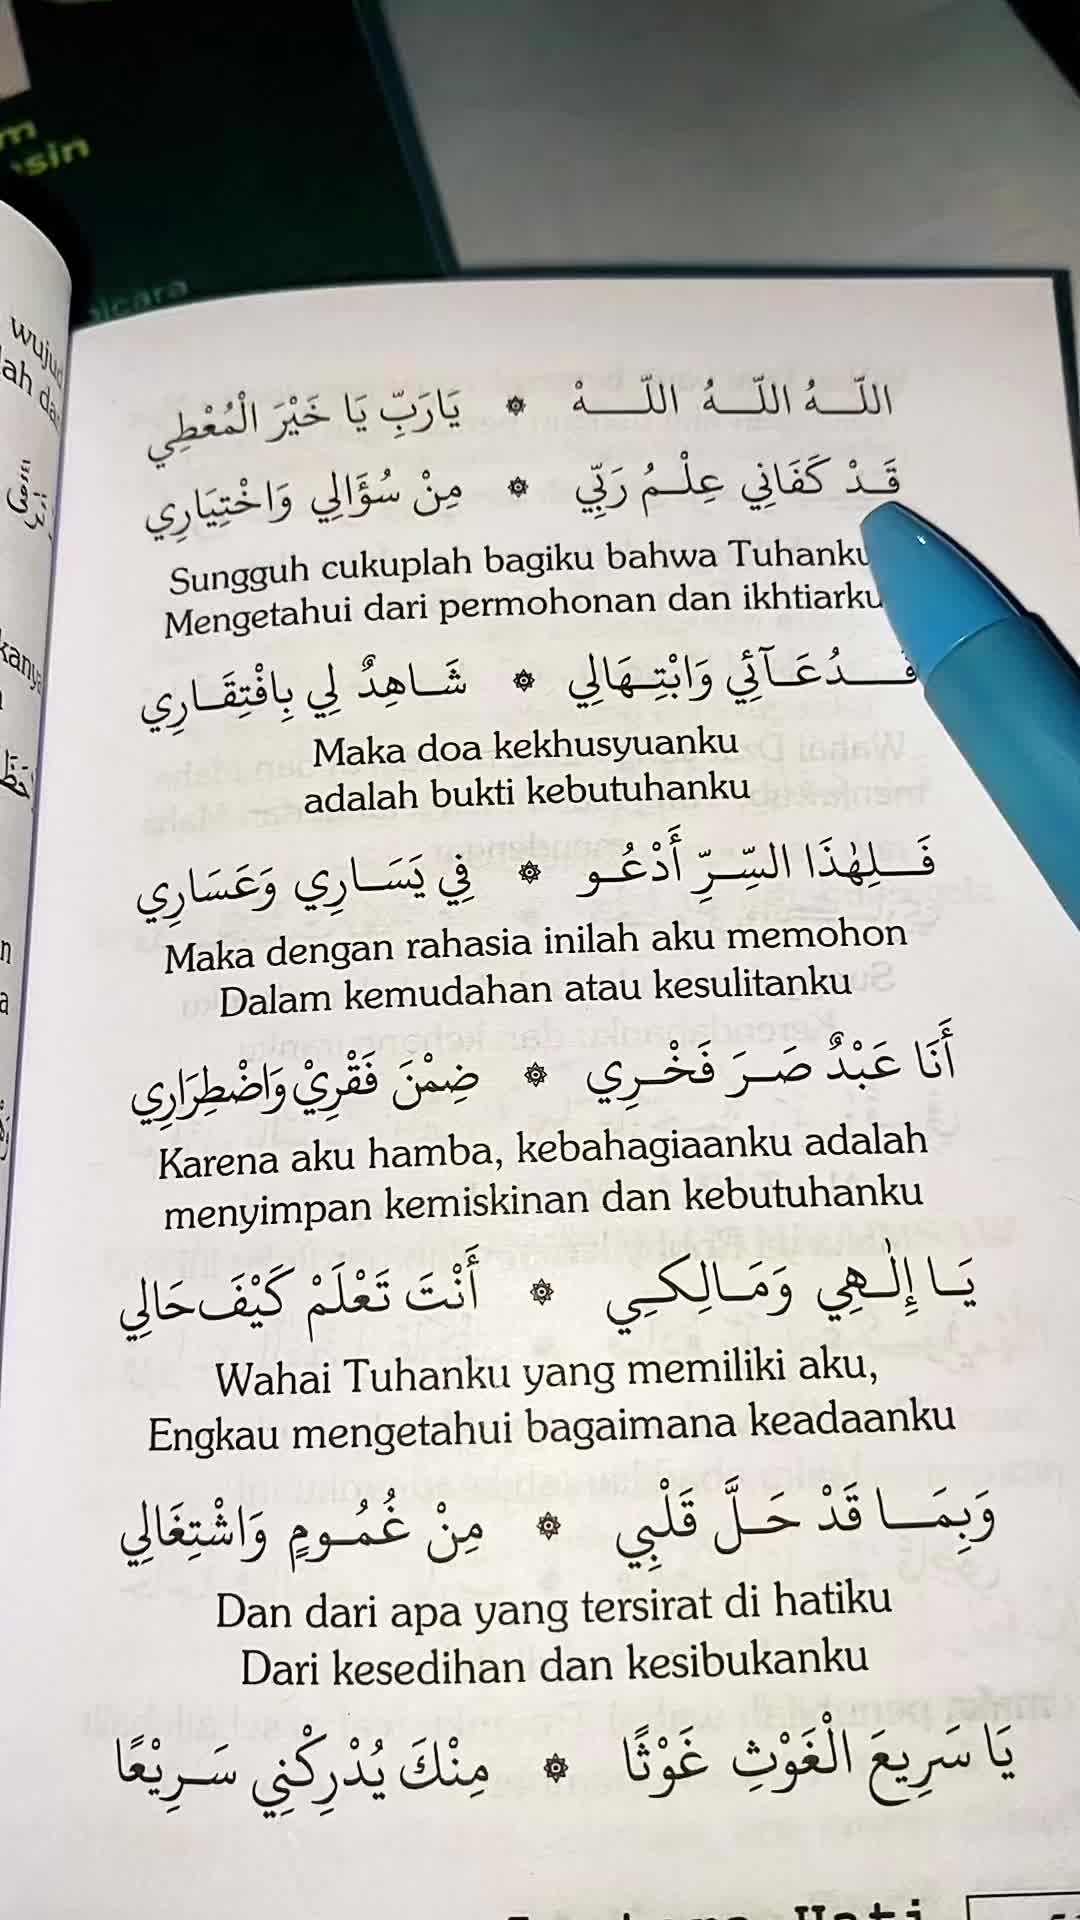 sin
wujud
lah da
اللّٰهُ اللّٰهُ اللّٰهْ ۞ يَارَبِّ يَا خَيْرَ الْمُعْطِي
قَدْ كَفَانِي عِلْمُ رَبِّي ۞ مِنْ سُؤَالِي وَاخْتِيَارِي
Sungguh cukuplah bagiku bahwa Tuhanku
Mengetahui dari permohonan dan ikhtiarku
فَدُعَآئِي وَابْتِهَالِي ۞ شَاهِدٌ لِي بِافْتِقَارِي
Maka doa kekhusyuanku
adalah bukti kebutuhanku
فَلِهٰذَا السِّرِّ أَدْعُو ۞ فِي يَسَارِي وَعَسَارِي
Maka dengan rahasia inilah aku memohon
Dalam kemudahan atau kesulitanku
أَنَا عَبْدٌ صَرَ فَخْرِي ۞ ضِمْنَ فَقْرِيْ وَاضْطِرَارِي
Karena aku hamba, kebahagiaanku adalah
menyimpan kemiskinan dan kebutuhanku
يَا إِلٰهِي وَمَالِكِي ۞ أَنْتَ تَعْلَمْ كَيْفَ حَالِي
Wahai Tuhanku yang memiliki aku,
Engkau mengetahui bagaimana keadaanku
وَبِمَا قَدْ حَلَّ قَلْبِي ۞ مِنْ غُمُومٍ وَاشْتِغَالِي
Dan dari apa yang tersirat di hatiku
Dari kesedihan dan kesibukanku
يَا سَرِيعَ الْغَوْثِ غَوْثًا ۞ مِنْكَ يُدْرِكْنِي سَرِيْعًا